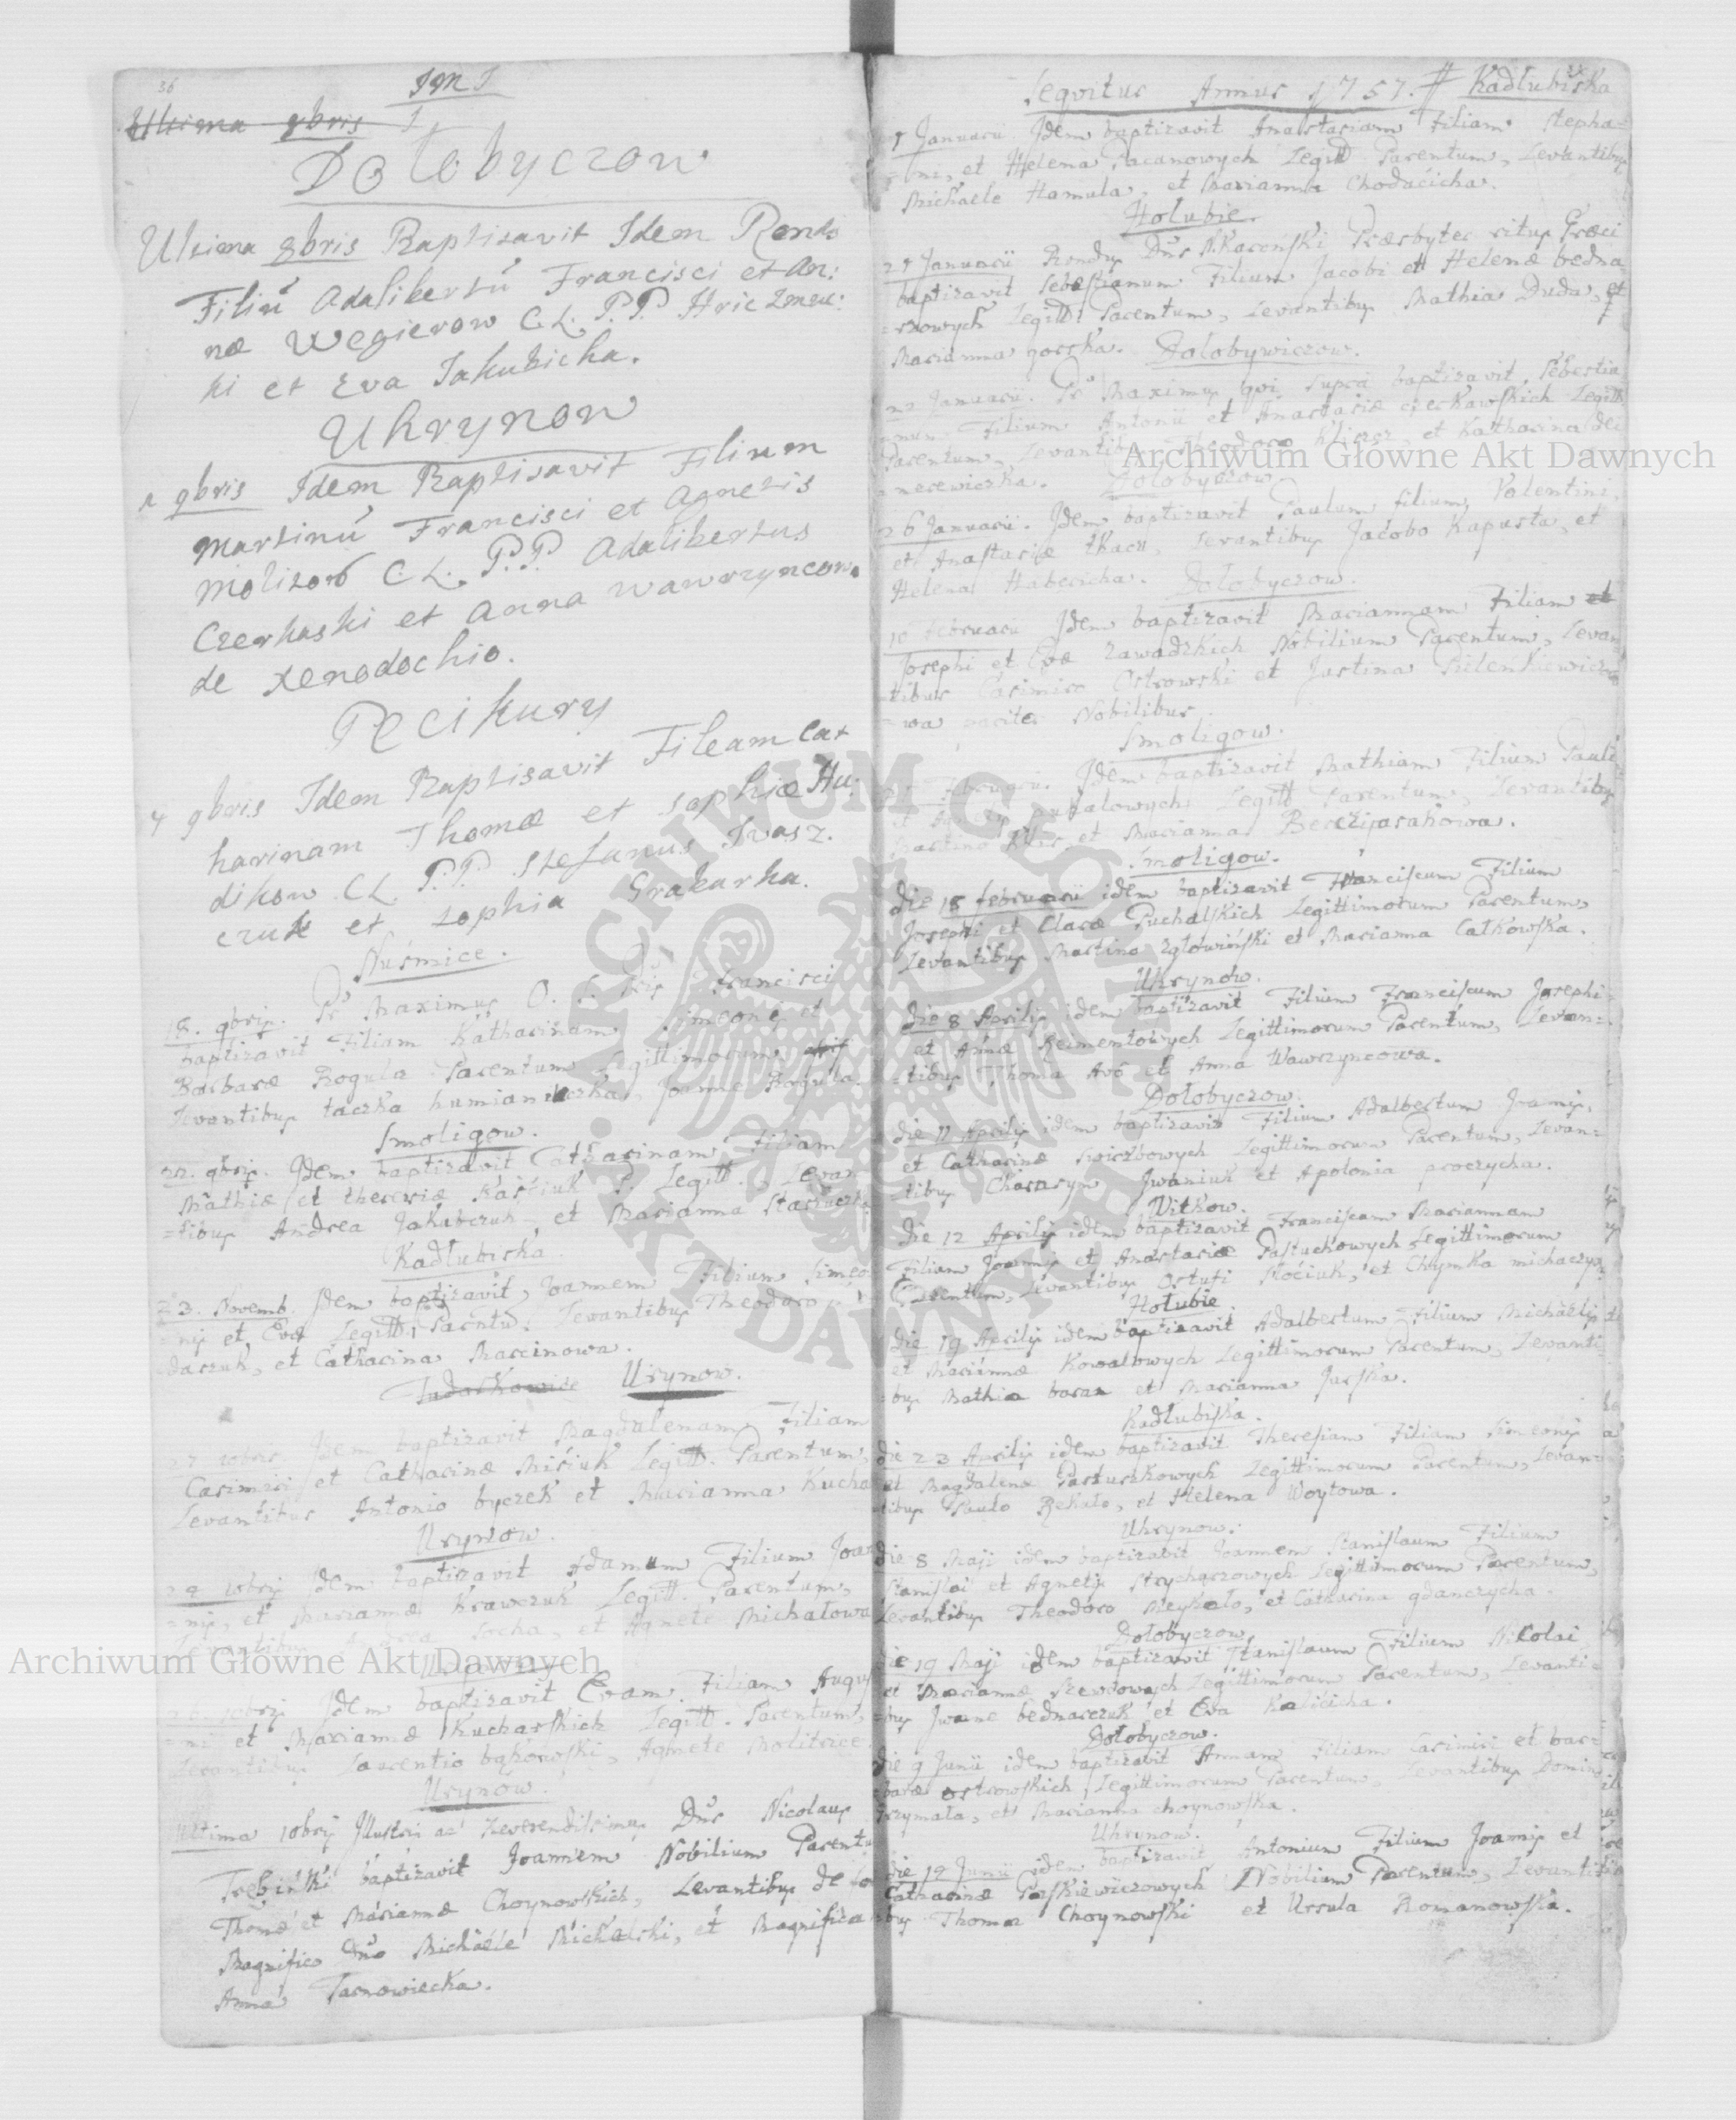 36
JMJ
Ultima 9bris
Dołobyczow
Ultima 8bris Baptisavit Idem Rends
Filiu Adalibertu Francisci et An:
næ Wegierow C. L. P.P. Hric
ki et Eva Jakubicha.
Uhrynow
1 9bris Idem Baptisavit Filium
Martinu Francisci et Agnetis
C. L. P.P. Adalibertus
Czerkaski et Anna Wawrzyncowa
de Xenodochio.
Pecikury
4 9bris Idem Baptisavit Fileam Cat
harinam Thomæ et Sophiæ Hu
dikow C L P.P. Stefanus Iwasz
czuk et Zophia Grabarka.
Nuśmice.
18. 9bris. Pr Maximus O. S. Francisci
baptizavit Filiam Katharinam Simeonis et
Barbaræ Rogula Parentum Legittimorum
levantibus Joanne Rogula.
Smoligow.
22. 9bris. Idem baptizavit Catharinam Filiam
Mathiæ et theresiæ P. Legitt. Levan
=tibus Andrea Jakubczuk et Marianna
Kadłubiska
23. Novemb. Idem baptizavit Joannem Filium Simeo
=nis et Evæ Legitt. Parentu. Levantibus Theodoro
et Catharina Marcinowa.
Tudorkowice Urynow.
27 10bris Idem baptizavit Magdalenam Filiam
Casimiri et Catharinæ Misiuk Legitt. Parentum,
Levantibus Antonio byczek et Marianna Kucha
Urynow.
29 10bris Idem baptizavit Adamum Filium Joan
=nis, et Mariannæ Krawczuk Legitt. Parentum,
Levantibus Andrea Socha, et Agnete Michałowa
26. 10bris Idem baptizavit Evam Filiam Augus
et Mariannæ Kucharskich Legitt. Parentum,
Levantibus Laurentio bąkowski, Agnete Molitrice.
Urynow.
Ultima 10bris Illustris ac Reverendissimus Dnus Nicolaus
Trębiński baptizavit Joannem Nobilium Parentu
Thomæ et Mariannæ Choynowskich, Levantibus de
Magnifico Dno Michaele Michalski, et Magnifica
Anna Tarnowiecka.
Sequitur Annus 1757. # Kadłubiska
Januarii Idem baptizavit Anastasiam Filiam Stepha=
=ni, et Helena Pacanowych Legitt Parentum, Levantibus
Michaele Hamula, et Marianna Chodacicha.
Hołubie.
Januarii Rendus Dnus Præsbyter ritus Græci
baptizavit Sebestianum Filium Jacobi et Helenæ bedna=
=rzowych Legitt: Parentum, Levantibus Mathia Duda, et
Marianna gorska. Dołobywiczow.
22 Januarii. Pr Maximus qui supra baptizavit Sebestia
=num Filium Antonii et Anastasiæ Legitt
Parentum, Levantibus Theodoro et Katharina
Dołobyczow
26 Januarii. Idem baptizavit Paulum filium Valentini,
et Anastasiæ tkacz, Levantibus Jacobo Kapusta, et
Helena Dołobyczow.
10 Februarii Idem baptizavit Mariannam Filiam et
Josephi et Evæ zawadzkich Nobilium Parentum, Levan
=tibus Casimiro Ostrowski et Justina
=wa pariter Nobilibus.
Smoligow.
Februarii. Idem baptizavit Mathiam Filium Pauli
Legitt Parentum, Levantibus
Martino et Marianna
Smoligow.
die 18 februarii idem baptizavit Franciscum Filium
Josephi et Claræ Puchalskich Legittimorum Parentum,
Levantibus Martino et Marianna Całkowska.
Uhrynow.
die 8 Aprilis idem baptizavit Filium Franciscum Josephi
et Annæ Legittimorum Parentum, Levan=
=tibus Thoma et Anna Wawrzyncowa.
Dołobyczow.
die 11 Aprilis idem baptizavit Filium Adalbertum Joannis,
et Catharinæ Legittimorum Parentum, Levan=
=tibus Charasym Jwaniuk et Apolonia
Witkow.
die 12 Aprilis idem baptizavit Franciscam Mariannam
Filiam Joannis et Anastasiæ Pastuchowych Legittimorum
Parentum, Levantibus et Chymka
Hołubie.
die 19 Aprilis idem baptizavit Adalbertum Filium Michaelis
et Mariannæ Kowalowych Legittimorum Parentum, Levanti=
bus Mathia baran et Marianna Jurska.
Kadłubiska.
die 23 Aprilis idem baptizavit Theresiam Filiam Simeonis
et Magdalenæ Pastuszkowych Legittimorum Parentum, Levan=
tibus Paulo et Helena Woytowa.
Uhrynow.
die 8 Maji idem baptizavit Joannem Stanislaum Filium
Stanislai et Agnetis Strycharzowych Legittimorum Parentum,
Levantibus Theodoro et Catharina
Dołobyczow.
die 19 Maji idem baptizavit Stanislaum Filium Nicolai,
et Mariannæ Szewcowych Legittimorum Parentum, Levanti=
bus Jwane bednarczuk et Eva
Dołobyczow.
die 9 Junii idem baptizavit Annam Filiam Casimiri et bar=
baræ ostrowskich Legittimorum Parentum, Levantibus
Grzymała, et Marianna choynowska.
Uhrynow.
die 19 Junii idem baptizavit Antonium Filium Joannis et
Catharinæ Nobilium Parentum, Levanti
bus Thoma Choynowski et Ursula Romanowska.
Archiwum Główne Akt Dawnych
Archiwum Główne Akt Dawnych
ARCHIWUM GŁÓWNE AKT DAWNYCH